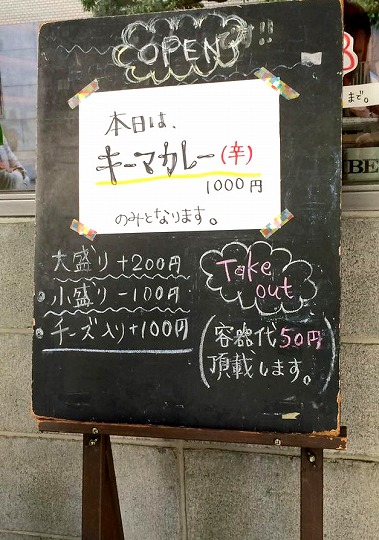 OPENです!!
本日は、
キーマカレー(辛)
1000円
のみとなります。
大盛り+200円
小盛り-100円
チーズ入り+100円
Take
out
(容器代50円
頂載します。)
まで。